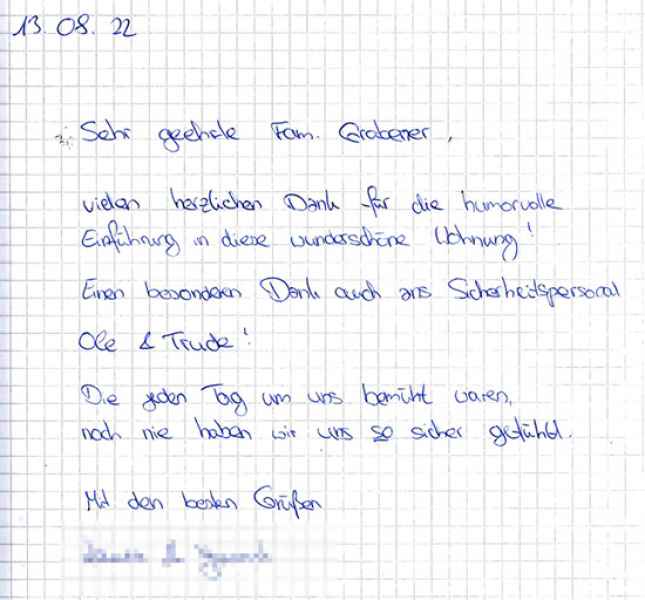 13.08.22
Sehr geehrte Fam. Grabener,
vielen herzlichen Dank für die humorvolle
Einführung in diese wunderschöne Wohnung!
Einen besonderen Dank auch ans Sicherheitspersonal
Ole & Trude!
Die jeden Tag um uns bemüht waren,
noch nie haben wir uns so sicher gefühlt.
Mit den besten Grüßen